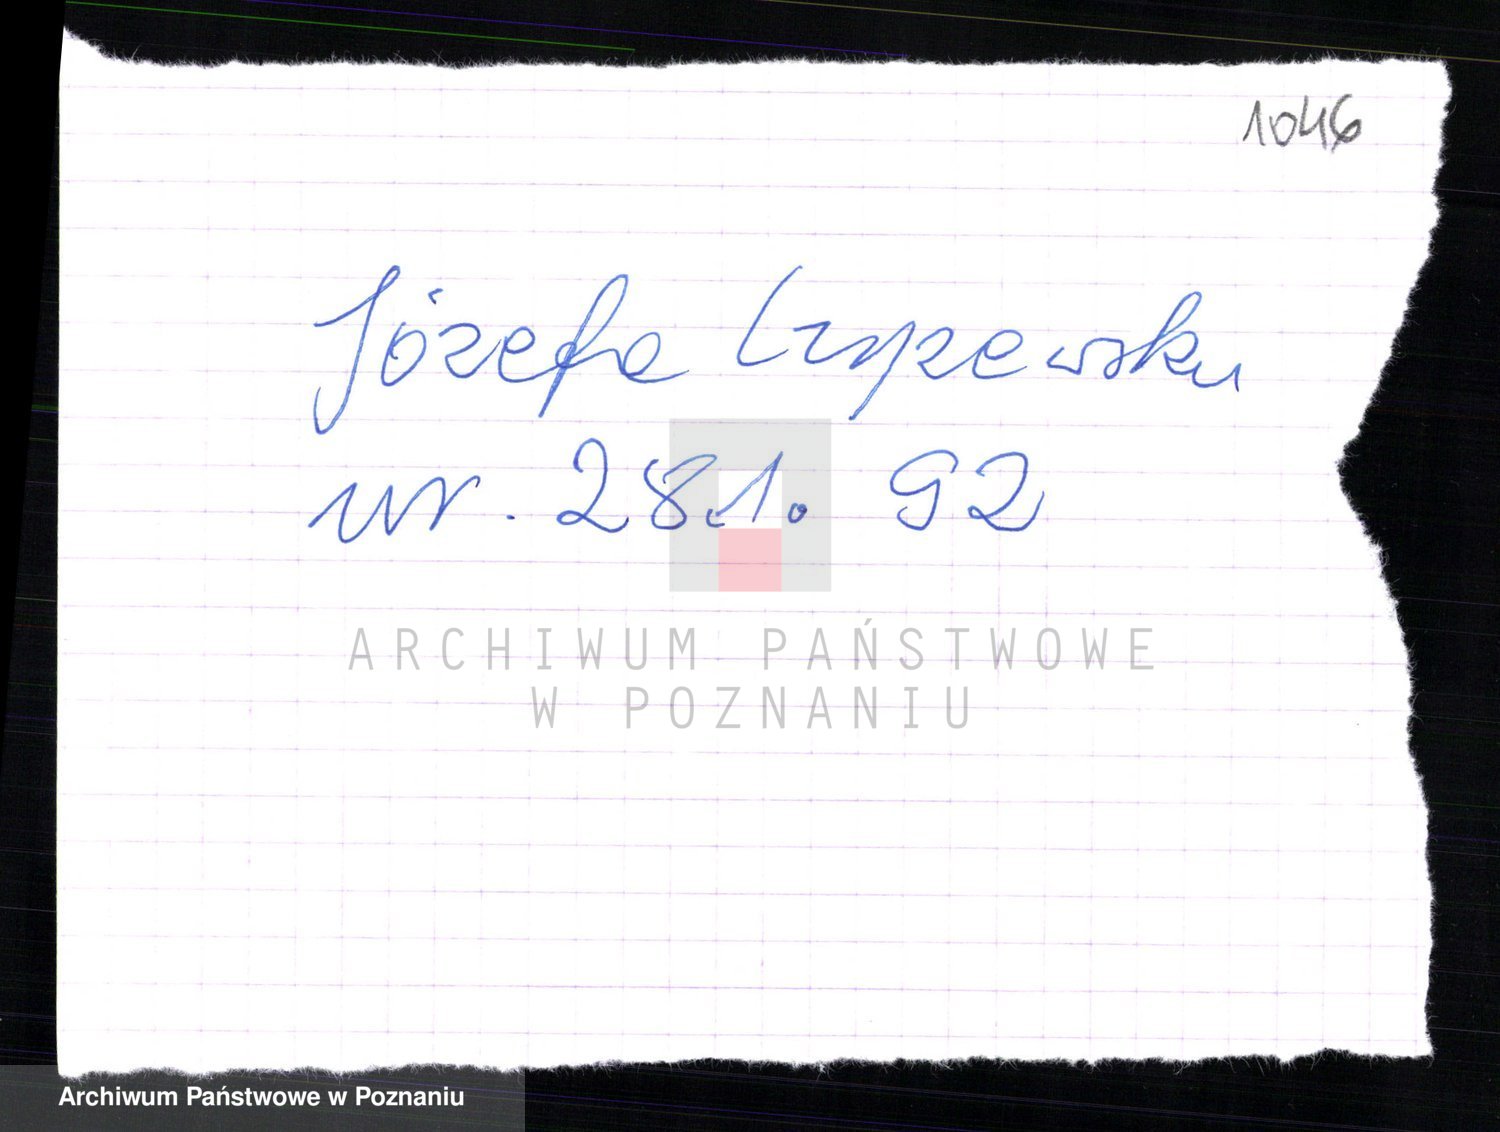 1046
Józefa
ur. 28.1. 92
ARCHIWUM PAŃSTWOWE
W POZNANIU
Archiwum Państwowe w Poznaniu